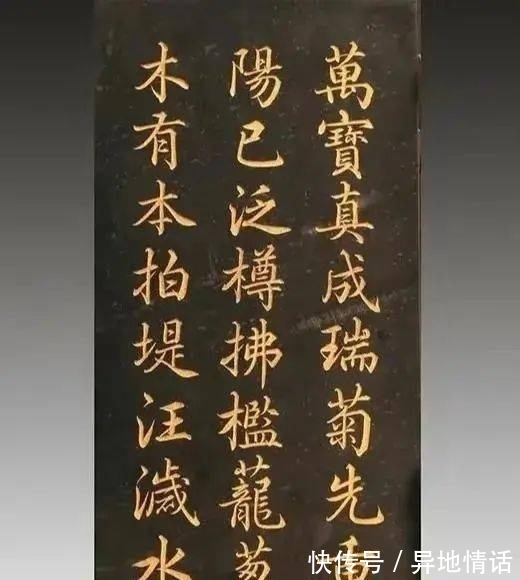 萬寶真成瑞菊先重
陽已泛樽拂檻蘢
木有本拍堤汪濊水
快传号/异地情话